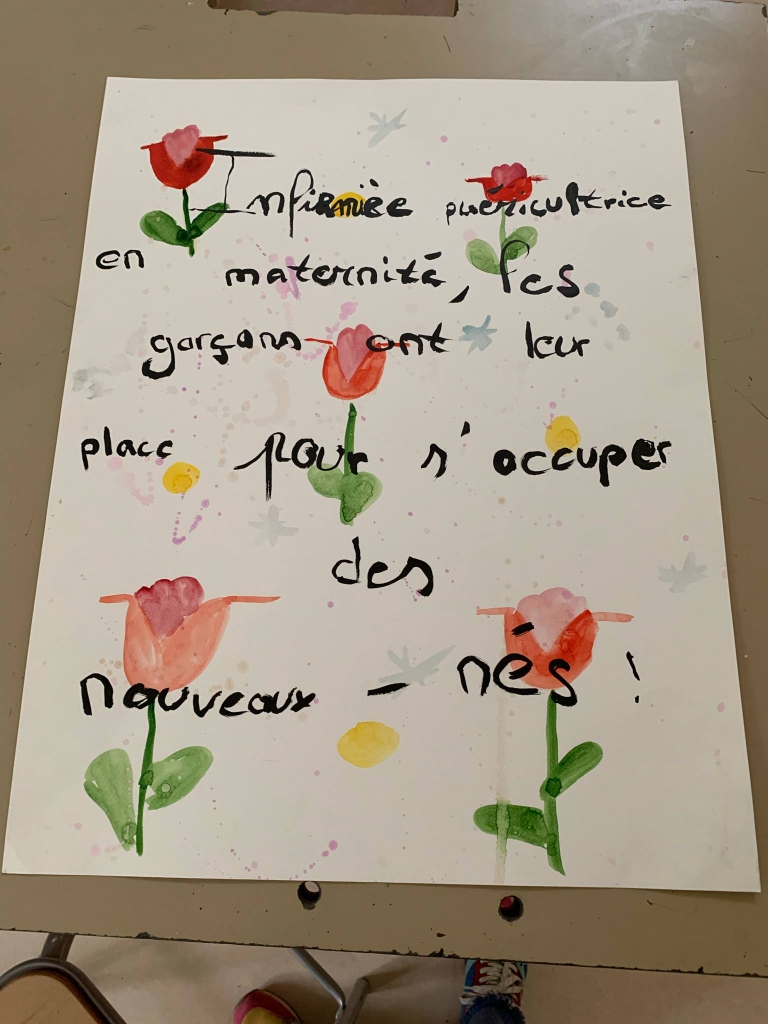 Infirmièe puéricultrice
en maternité, les
garçons ont leur
place pour s'occuper
des
nouveaux - nés !